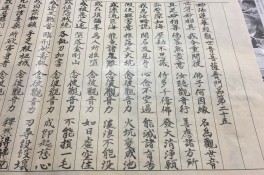 妙法蓮華經觀世音菩薩普門品第二十五
世尊妙相具 我今重問彼 佛子何因緣 名為觀世音
具足妙相尊 偈答無盡意 汝聽觀音行 善應諸方所
弘誓深如海 歷劫不思議 侍多千億佛 發大清淨願
我為汝略說 聞名及見身 心念不空過 能滅諸有苦
假使興害意 推落大火坑 念彼觀音力 火坑變成池
或漂流巨海 龍魚諸鬼難 念彼觀音力 波浪不能沒
或在須彌峯 為人所推墮 念彼觀音力 如日虛空住
或被惡人逐 墮落金剛山 念彼觀音力 不能損一毛
或值怨賊繞 各執刀加害 念彼觀音力 咸即起慈心
或遭王難苦 臨刑欲壽終 念彼觀音力 刀尋段段壞
或囚禁枷鎖 手足被杻械 念彼觀音力 釋然得解脫
所欲害身者 念彼觀音力